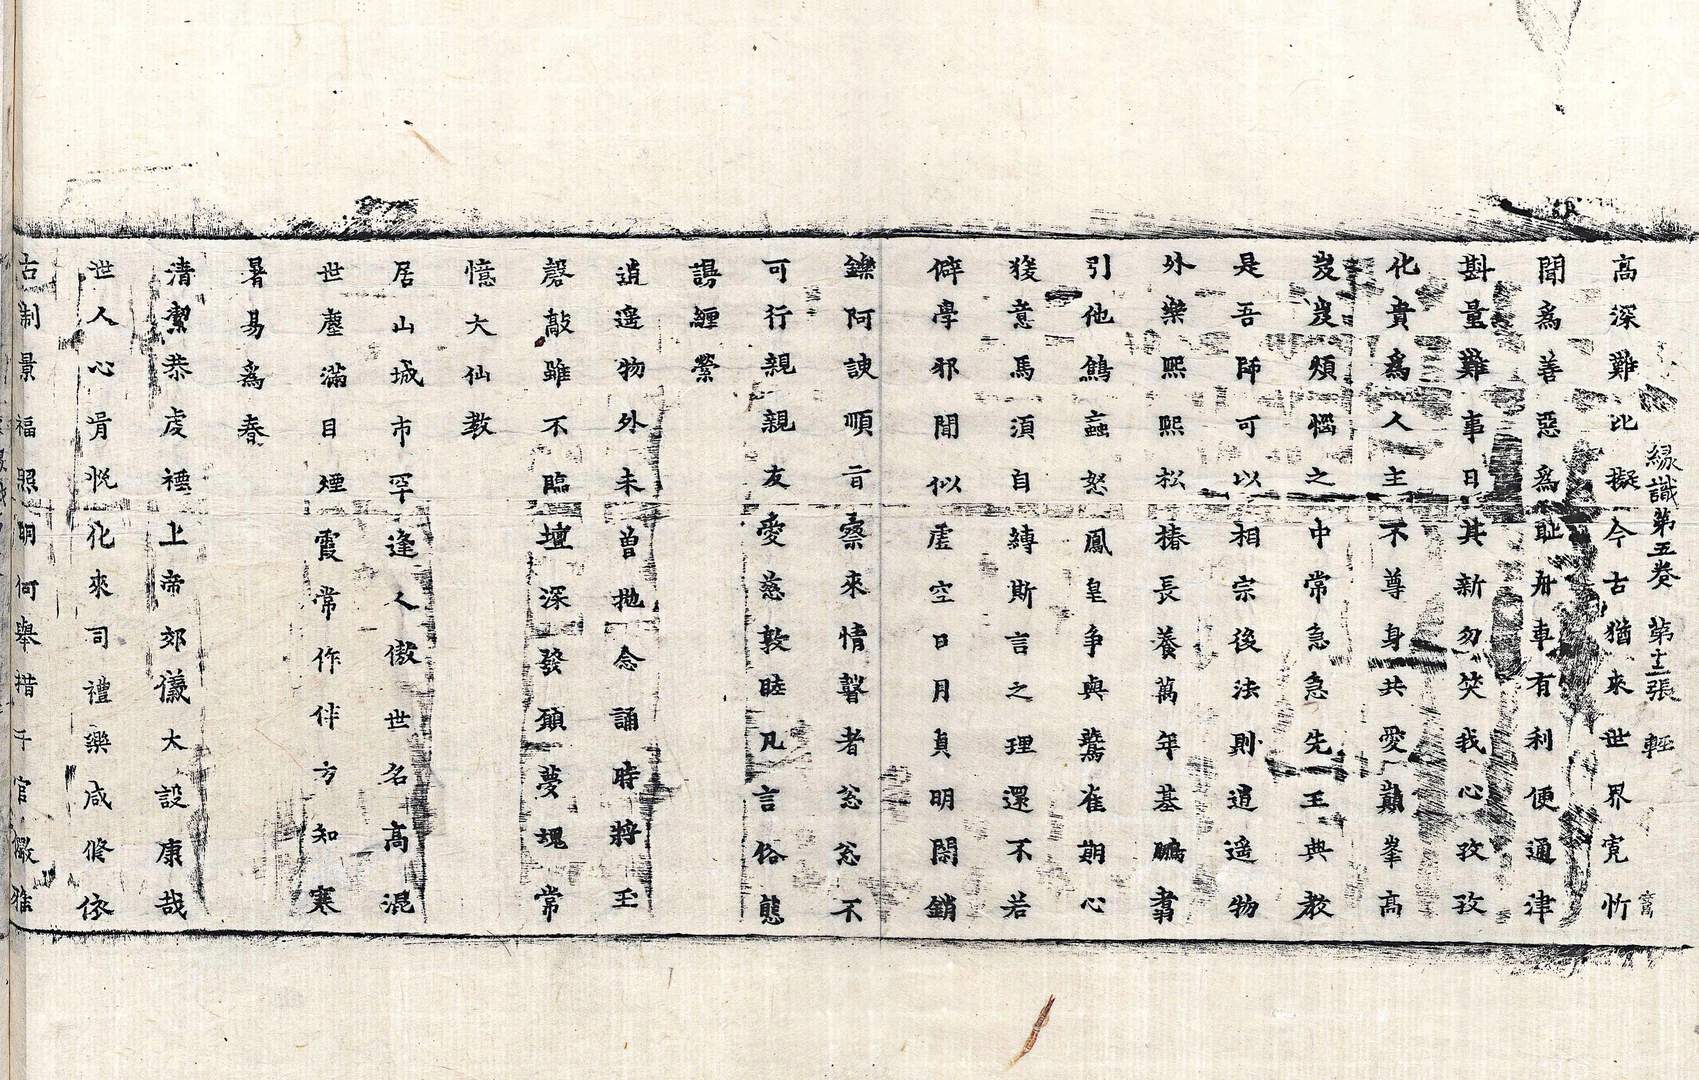 緣識第五卷 第十二張 輕
高深難比擬今古猶來世界寬忻
聞為善惡為恥舟車有利便通津
斟量難事日其新勿笑我心孜孜
化貴為人主不尊身共愛巔峯高
岌岌煩惱之中常急急先王典教
是吾師可以相宗後法則逍遥物
外樂熙熙松椿長養萬年基鵬翥
引他鷦蟁怒鳳皇爭與鷙雀期心
猨意馬須自縛斯言之理還不若
僻學邪聞似虛空日月貞明闇銷
鑠阿諛順言察來情瞽者忩忩不
可行親親友愛慈敦睦凡言俗態
謁纏縈
逍遥物外未曾拋念誦時將玉
磬敲雖不臨壇深發願夢魂常
憶大仙教
居山城市罕逢人傲世名高混
世塵滿目煙霞常作伴方知寒
暑易為春
清絜恭虔禋上帝郊儀大設康哉
世人心肯悅化來司禮樂咸修依
古制景福照明何舉措千官儼雅